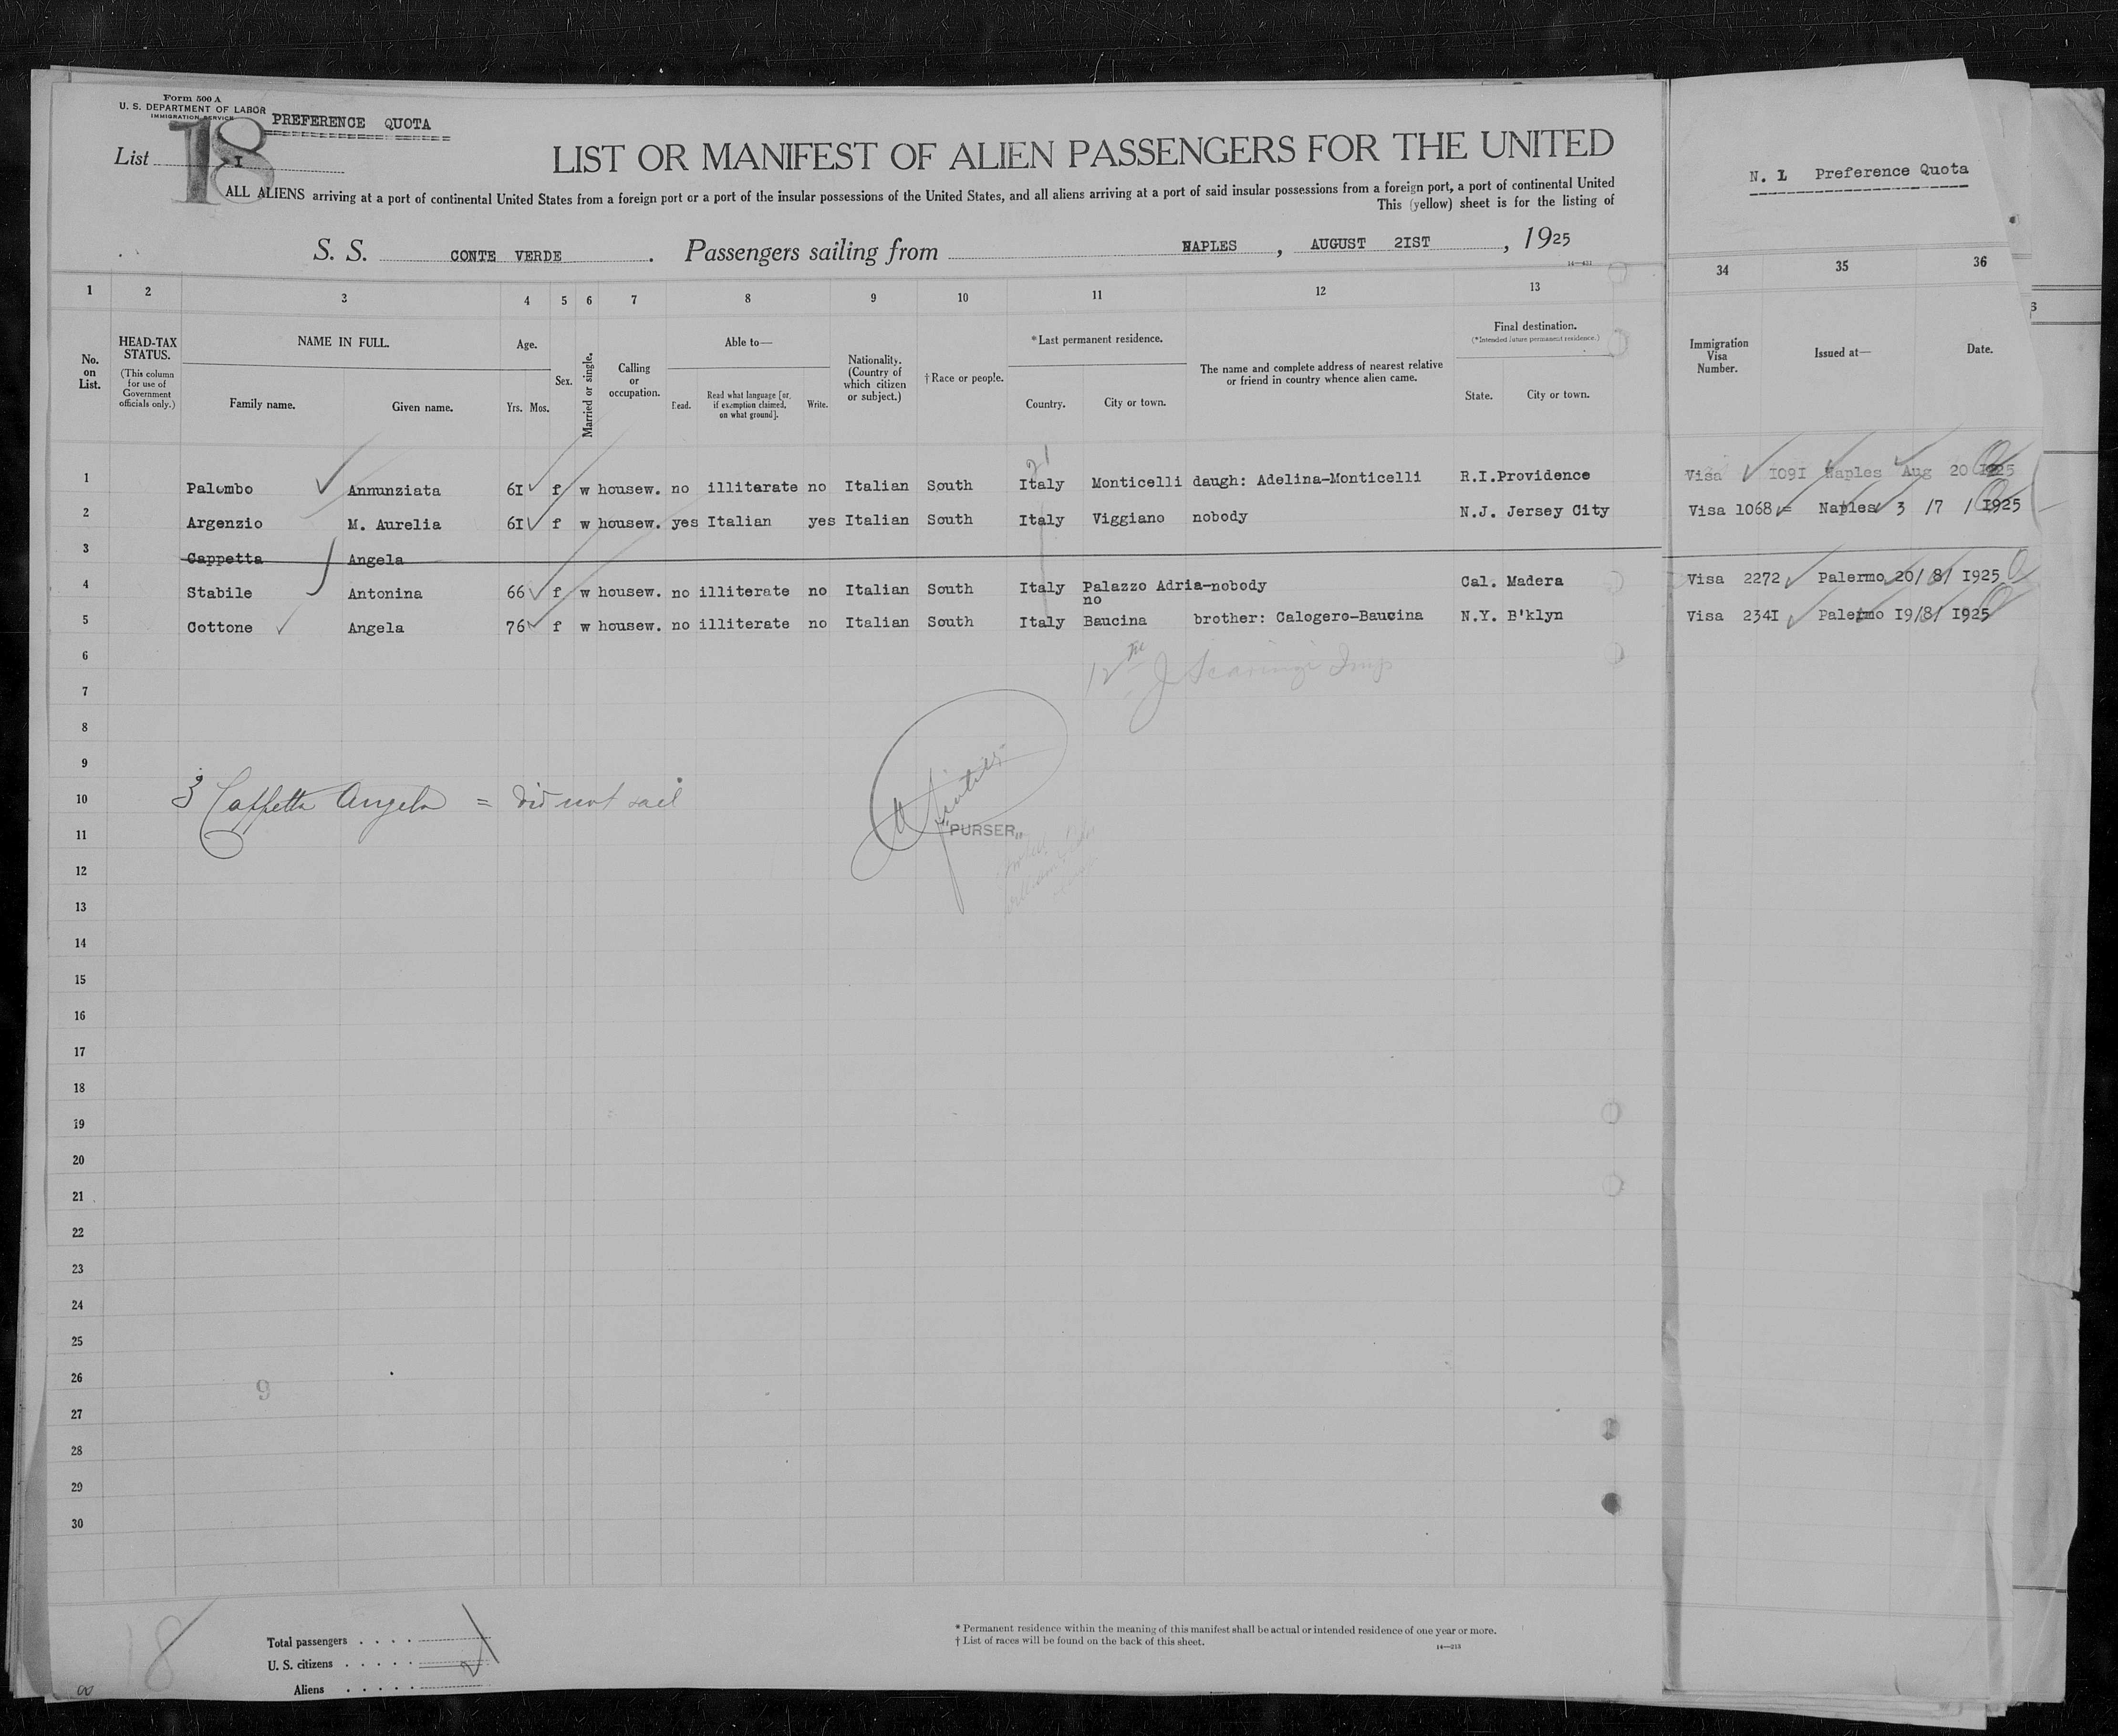 Form 500 A
U. S. DEPARTMENT OF LABOR
IMMIGRATION SERVICE
PREFERENCE QUOTA
18
List I
LIST OR MANIFEST OF ALIEN PASSENGERS FOR THE UNITED
ALL ALIENS arriving at a port of continental United States from a foreign port or a port of the insular possessions of the United States, and all aliens arriving at a port of said insular possessions from a foreign port, a port of continental United
This (yellow) sheet is for the listing of
N. 1 Preference Quota
S. S. CONTE VERDE . Passengers sailing from NAPLES , AUGUST 21ST , 1925
1 2 3 4 5 6 7 8 9 10 11 12 13 34 35 36
No. on List.
HEAD-TAX STATUS.
(This column for use of Government officials only.)
NAME IN FULL.
Family name. Given name.
Age.
Yrs. Mos.
Sex.
Married or single.
Calling or occupation.
Able to—
Read.
Read what language [or, if exemption claimed, on what ground].
Write.
Nationality. (Country of which citizen or subject.)
† Race or people.
* Last permanent residence.
Country. City or town.
The name and complete address of nearest relative or friend in country whence alien came.
Final destination.
(* Intended future permanent residence.)
State. City or town.
Immigration Visa Number.
Issued at—
Date.
21
1 Palombo Annunziata 61 f w housew. no illiterate no Italian South Italy Monticelli daugh: Adelina-Monticelli R.I.Providence Visa 1091 Naples Aug 20 1925
2 Argenzio M. Aurelia 61 f w housew. yes Italian yes Italian South Italy Viggiano nobody N.J. Jersey City Visa 1068 Naples 3 /7 / 1925
3 Cappetta Angela
4 Stabile Antonina 66 f w housew. no illiterate no Italian South Italy Palazzo Adria-nobody Cal. Madera Visa 2272 Palermo 20/ 8/ 1925
no
5 Cottone Angela 76 f w housew. no illiterate no Italian South Italy Baucina brother: Calogero-Baucina N.Y. B'klyn Visa 2341 Palermo 19/8/ 1925
6
7
8
9
10
3 Cappetta Angela = did not sail
11
"PURSER"
12
13
14
15
16
17
18
19
20
21
22
23
24
25
26
9
27
28
29
30
18
Total passengers . . . .
U. S. citizens . . . . .
Aliens . . . . .
* Permanent residence within the meaning of this manifest shall be actual or intended residence of one year or more.
† List of races will be found on the back of this sheet.
14—213